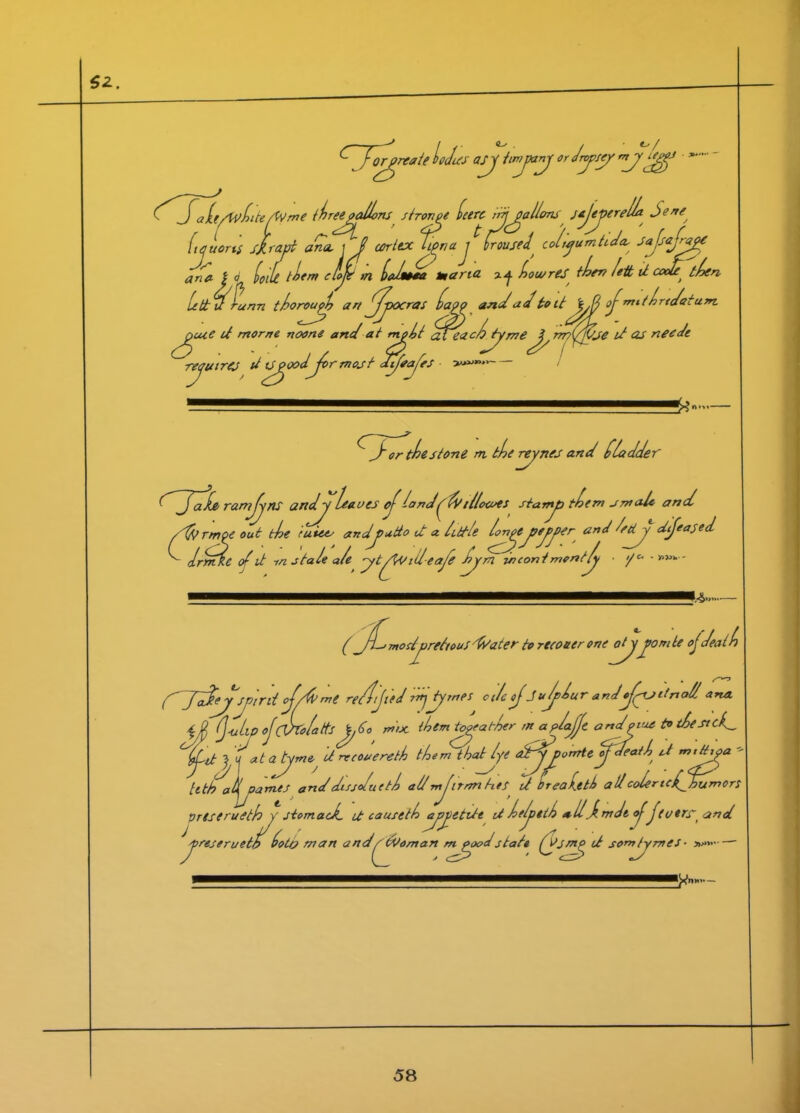 52.
For greate bodies as yͤ timpany or dropsey in yͤ leggs
Take White Wine three gallons stronge beere iiij gallons
liquoris skrapt ana
boile them close in balnea maria 24 howres then lett it coole then
lett it runn thorough an Jpocras bagg and ad to it of mithredatum
giue it morne noone and at night at each tyme Vse it as neede
requires it is good for most diseases
For the stone in the reynes and bladder
Take ramsyns and yͤ leaues of land Willowes stamp them smale and
Wringe out the iuice and putto it a little longe pepper and lett yͤ diseased
drinke of it in stale ale yt Will ease hym incontinently
A most pretious Water to recouer one at yͤ pointe of death
Take yͤ spirit of Wine rectified iij tymes oile of Sulphur and of
Julip of Violatts mix them togeather in a glasse and giue to the sick
of it at a tyme it recouereth them that lye at yͤ pointe of death it mittiga
teth all paines and dissolueth all infirmities it breaketh all colerick humors
preserueth yͤ stomack it causeth appetite it helpeth all kinde of feuers and
preserueth both man and Woman in good state Vsing it somtymes
58